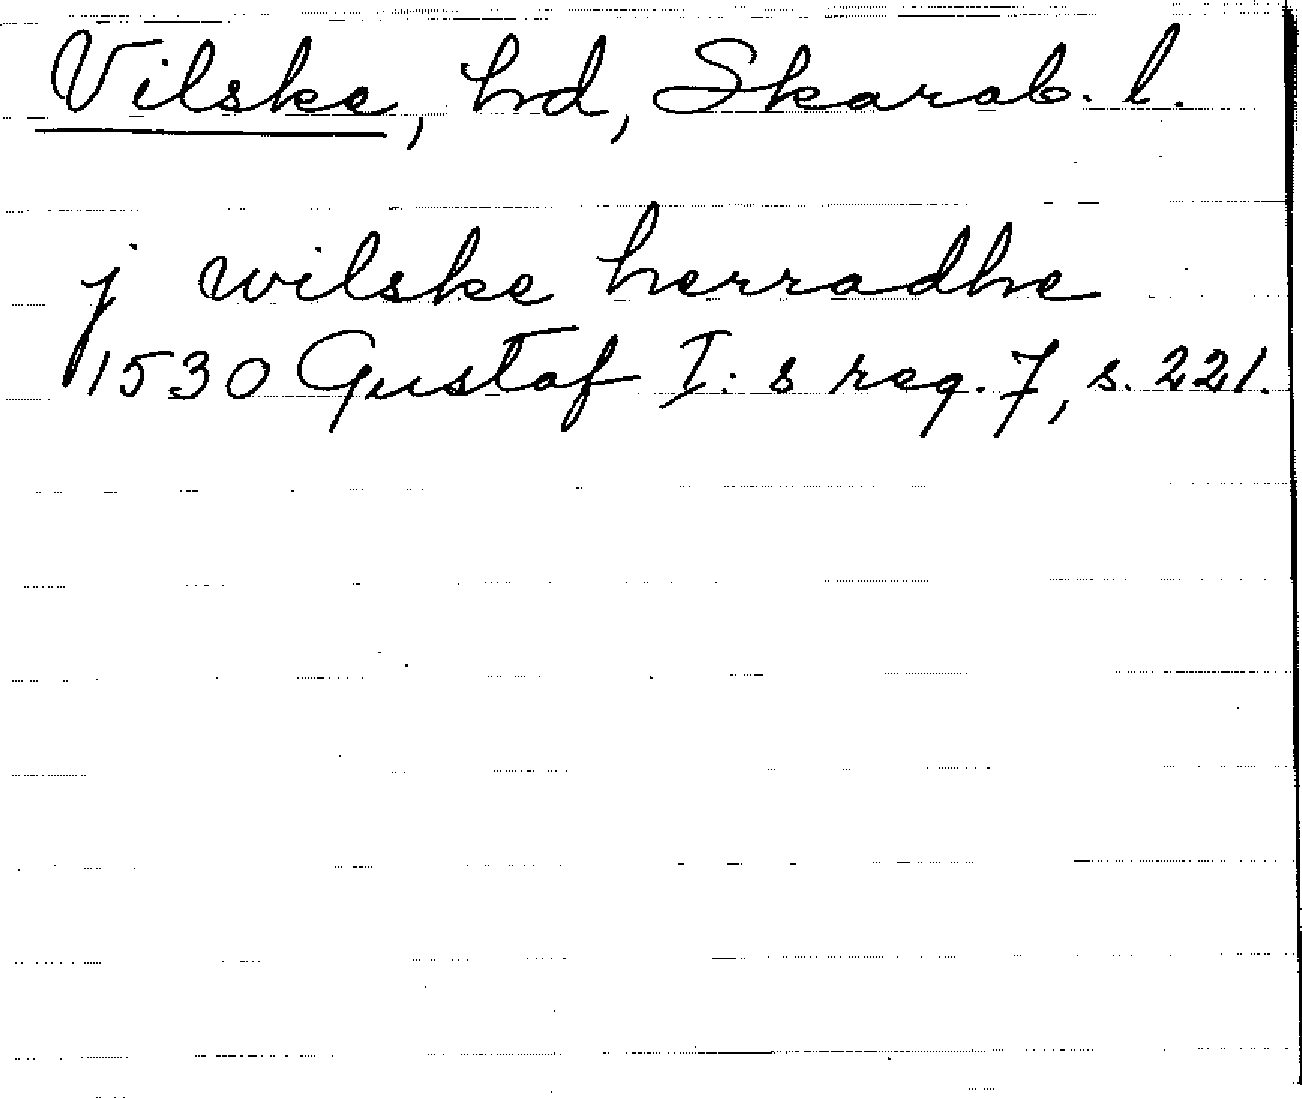 Vilske, hd, Skarab. l.
j wilske herradhe
1530 Gustaf I:s reg. 7, s. 221.